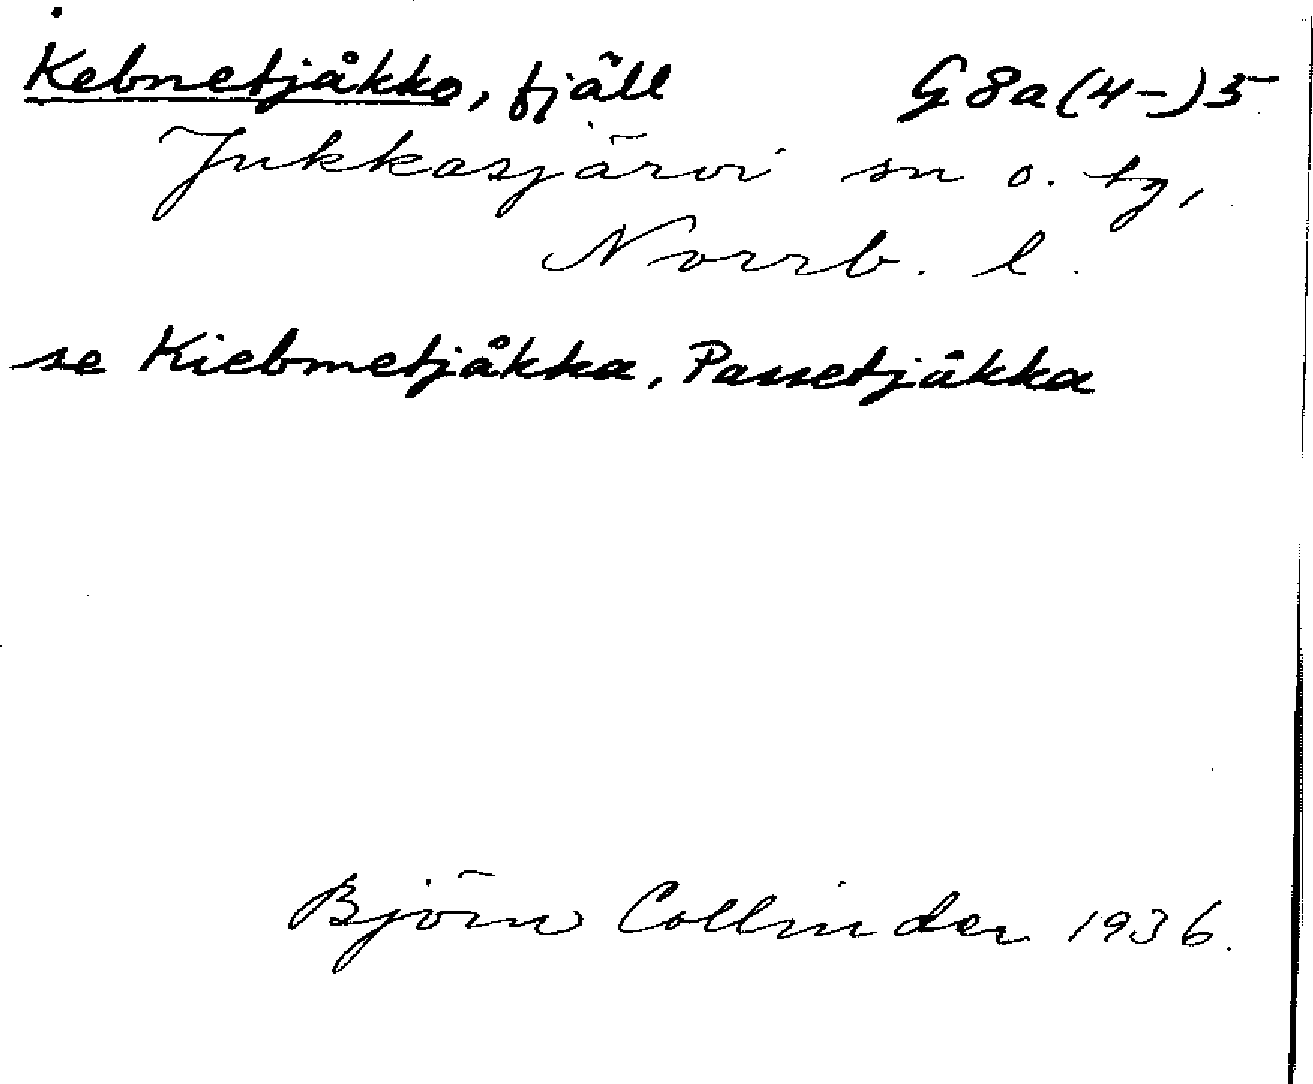 Kebnetjåkko, fjäll G 8a (4-) 5
Jukkasjärvi sn o. tg,
Norrb. l.
se Kiebmetjåkka, Passetjåkka
Björn Collinder 1936.